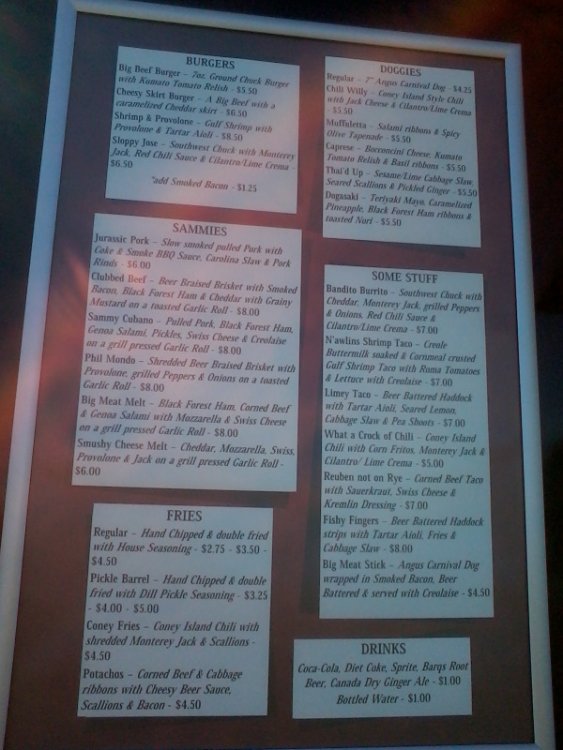 BURGERS
Big Beef Burger - 7oz. Ground Chuck Burger
with Kumato Tomato Relish - $5.50
Cheesy Skirt Burger - A Big Beef with a
caramelized Cheddar skirt - $6.50
Shrimp & Provolone - Gulf Shrimp with
Provolone & Tartar Aioli - $8.50
Sloppy Jose - Southwest Chuck with Monterey
Jack, Red Chili Sauce & Cilantro/Lime Crema -
$6.50
*add Smoked Bacon - $1.25
SAMMIES
Jurassic Pork - Slow smoked pulled Pork with
Coke & Smoke BBQ Sauce, Carolina Slaw & Pork
Rinds - $6.00
Clubbed Beef - Beer Braised Brisket with Smoked
Bacon, Black Forest Ham & Cheddar with Grainy
Mustard on a toasted Garlic Roll - $8.00
Sammy Cubano - Pulled Pork, Black Forest Ham,
Genoa Salami, Pickles, Swiss Cheese & Creolaise
on a grill pressed Garlic Roll - $8.00
Phil Mondo - Shredded Beer Braised Brisket with
Provolone, grilled Peppers & Onions on a toasted
Garlic Roll - $8.00
Big Meat Melt - Black Forest Ham, Corned Beef
& Genoa Salami with Mozzarella & Swiss Cheese
on a grill pressed Garlic Roll - $8.00
Smushy Cheese Melt - Cheddar, Mozzarella, Swiss,
Provolone & Jack on a grill pressed Garlic Roll -
$6.00
FRIES
Regular - Hand Chipped & double fried
with House Seasoning - $2.75 - $3.50 -
$4.50
Pickle Barrel - Hand Chipped & double
fried with Dill Pickle Seasoning - $3.25
- $4.00 - $5.00
Coney Fries - Coney Island Chili with
shredded Monterey Jack & Scallions -
$4.50
Potachos - Corned Beef & Cabbage
ribbons with Cheesy Beer Sauce,
Scallions & Bacon - $4.50
DOGGIES
Regular - 7" Angus Carnival Dog - $4.25
Chili Willy - Coney Island Style Chili
with Jack Cheese & Cilantro/Lime Crema
- $5.50
Muffuletta - Salami ribbons & Spicy
Olive Tapenade - $5.50
Caprese - Bocconcini Cheese, Kumato
Tomato Relish & Basil ribbons - $5.50
Thai'd Up - Sesame/Lime Cabbage Slaw
Seared Scallions & Pickled Ginger - $5.50
Dogasaki - Teriyaki Mayo, Caramelized
Pineapple, Black Forest Ham ribbons &
toasted Nori - $5.50
SOME STUFF
Bandito Burrito - Southwest Chuck with
Cheddar, Monterey Jack, grilled Peppers
& Onions, Red Chili Sauce &
Cilantro/Lime Crema - $7.00
N'awlins Shrimp Taco - Creole
Buttermilk soaked & Cornmeal crusted
Gulf Shrimp Taco with Roma Tomatoes
& Lettuce with Creolaise - $7.00
Limey Taco - Beer Battered Haddock
with Tartar Aioli, Seared Lemon,
Cabbage Slaw & Pea Shoots - $7.00
What a Crock of Chili - Coney Island
Chili with Corn Fritos, Monterey Jack &
Cilantro/ Lime Crema - $5.00
Reuben not on Rye - Corned Beef Taco
with Sauerkraut, Swiss Cheese &
Kremlin Dressing - $7.00
Fishy Fingers - Beer Battered Haddock
strips with Tartar Aioli, Fries &
Cabbage Slaw - $8.00
Big Meat Stick - Angus Carnival Dog
wrapped in Smoked Bacon, Beer
Battered & served with Creolaise - $4.50
DRINKS
Coca-Cola, Diet Coke, Sprite, Barqs Root
Beer, Canada Dry Ginger Ale - $1.00
Bottled Water - $1.00